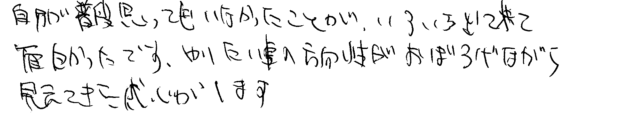 自分が普段思ってもいなかったことが、いろいろ出て来て
面白かったです。やりたい事の方向性がおぼろげながら
見えてきた感じがします